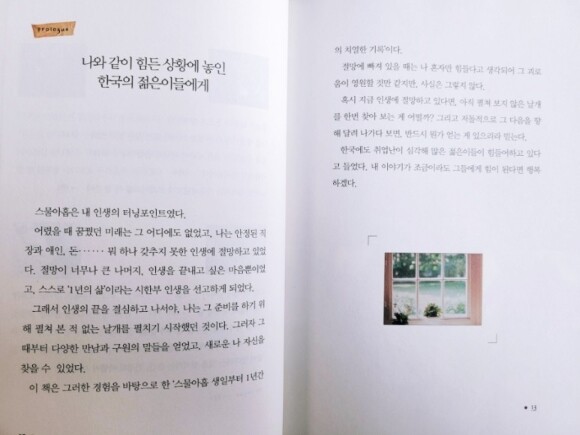 prologue
나와 같이 힘든 상황에 놓인
한국의 젊은이들에게
스물아홉은 내 인생의 터닝포인트였다.
어렸을 때 꿈꿨던 미래는 그 어디에도 없었고, 나는 안정된 직
장과 애인, 돈…… 뭐 하나 갖추지 못한 인생에 절망하고 있었
다. 절망이 너무나 큰 나머지, 인생을 끝내고 싶은 마음뿐이었
고, 스스로 '1년의 삶'이라는 시한부 인생을 선고하게 되었다.
그래서 인생의 끝을 결심하고 나서야, 나는 그 준비를 하기 위
해 펼쳐 본 적 없는 날개를 펼치기 시작했던 것이다. 그러자 그
때부터 다양한 만남과 구원의 말들을 얻었고, 새로운 나 자신을
찾을 수 있었다.
이 책은 그러한 경험을 바탕으로 한 '스물아홉 생일부터 1년간
의 치열한 기록'이다.
절망에 빠져 있을 때는 나 혼자만 힘들다고 생각되어 그 괴로
움이 영원할 것만 같지만, 사실은 그렇지 않다.
혹시 지금 인생에 절망하고 있다면, 아직 펼쳐 보지 않은 날개
를 한번 찾아 보는 게 어떨까? 그리고 저돌적으로 그 다음을 향
해 달려 나가다 보면, 반드시 뭔가 얻는 게 있으리라 믿는다.
한국에도 취업난이 심각해 많은 젊은이들이 힘들어하고 있다
고 들었다. 내 이야기가 조금이라도 그들에게 힘이 된다면 행복
하겠다.
13